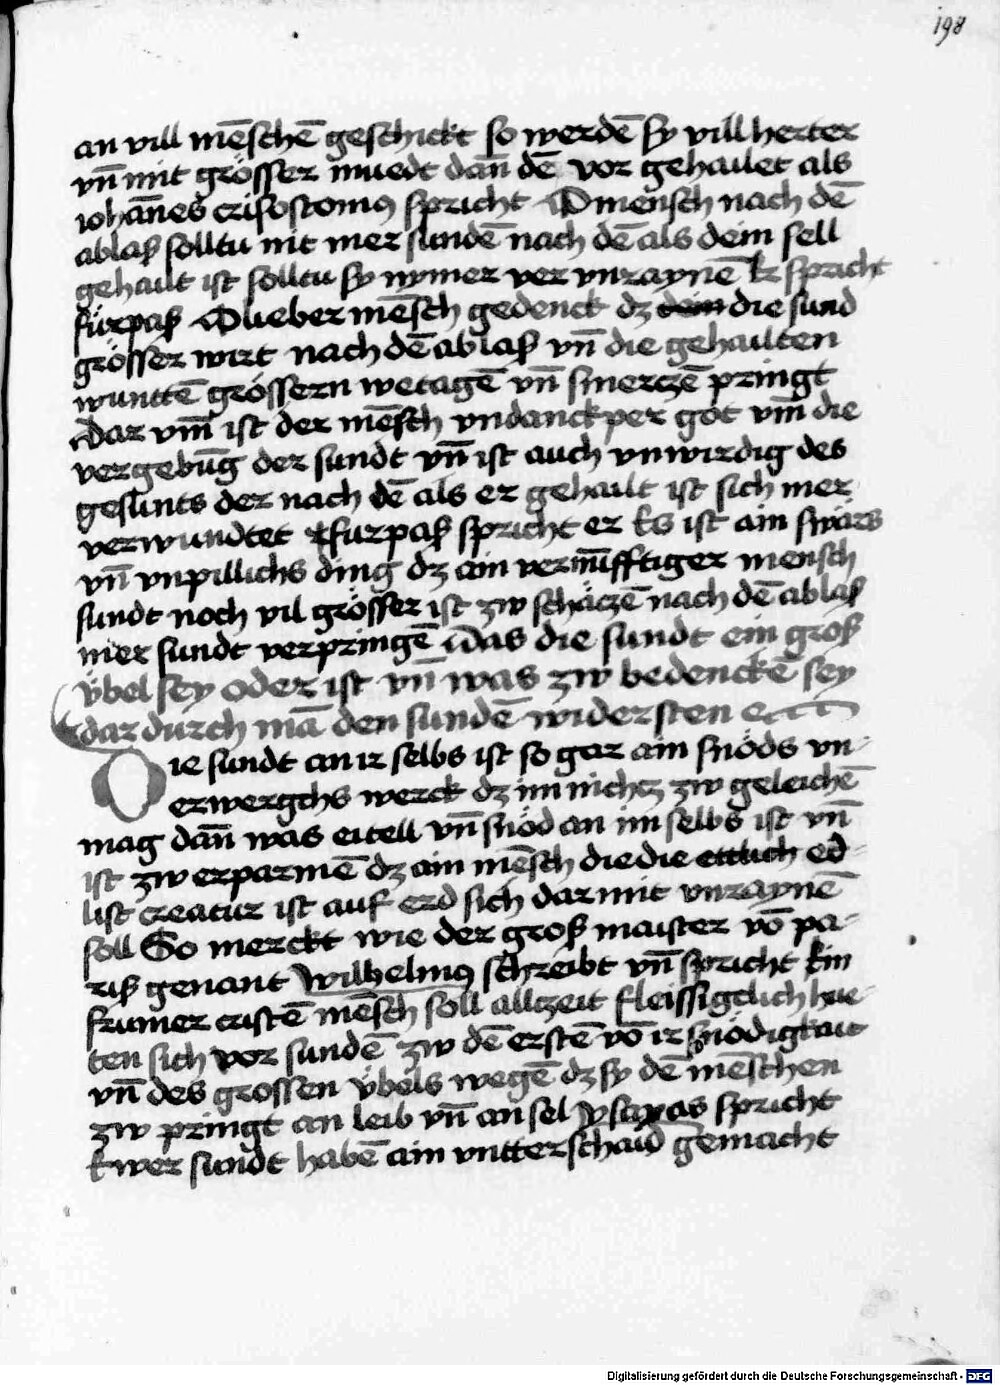 198
an vill mēschē geschickt so werdē sy vill herter
vn̄ mit grösser muedt dan̄ dē vor gehailet als
iohānes crisostomus spricht O mensch nach dē
ablaß solltu nit mer sundē nach dē als dein sell
gehailt ist solltu sy nymer ver vnraynē Er spricht
fürpaß O lieber mēsch gedenck dz dein die sund
grösser wirt nach dē ablaß vn̄ die gehailten
wunttē grössern wetagē vn̄ smerczē pringt
Dar vm̄ ist der mēsch vndanckper got vm̄ die
vergebūg der sundt vn̄ ist auch vnwirdig des
gesunts der nach dē als er gehailt ist sich mer
verwundtet Fürpaß spricht er Es ist ain swärs
vn̄ vnpillichs ding dz ein vernūfftiger mensch
sundt noch vil grösser ist zw schäczē nach dē ablaß
mer sundt verpringē Was die sundt ein groß
vbel sey oder ist vn̄ was zw bedenckē sey
dar durch mā den sundē widersten etc
Die sundt an ir selbs ist so gar ain snöds vn-
erwergchs werck dz im nichcz zw geleichē
mag dan̄ was eitell vn̄ snöd an im selbs ist vn̄
ist zw erparmē dz ain mēsch die die ettlich ed-
list creatur ist auf erd sich dar mit vnraynē
soll So merckt wie der groß maister vō pa-
riß genant Wilhelmus schreibt vn̄ spricht Ein
frumer cristē mēsch soll allczeit fleissigclich hue-
ten sich vor sundē zw dē erstē vō ir snödigkait
vn̄ des grossen vbels wegē dz sy dē mēschen
zw pringt an leib vn̄ an sel ysayas spricht
Ewer sundt habē ain vntterschaid gemacht
Digitalisierung gefördert durch die Deutsche Forschungsgemeinschaft - DFG